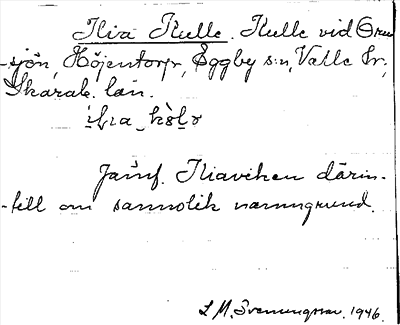 Ilia Kulle. Kulle vid Orm-
-sjön, Höjentorp, Eggby s:n, Valle hr,
Skarab. län.
Jämf. Iliaviken därin-
-till om sannolik namngrund.
L M. Svenungsson. 1946.